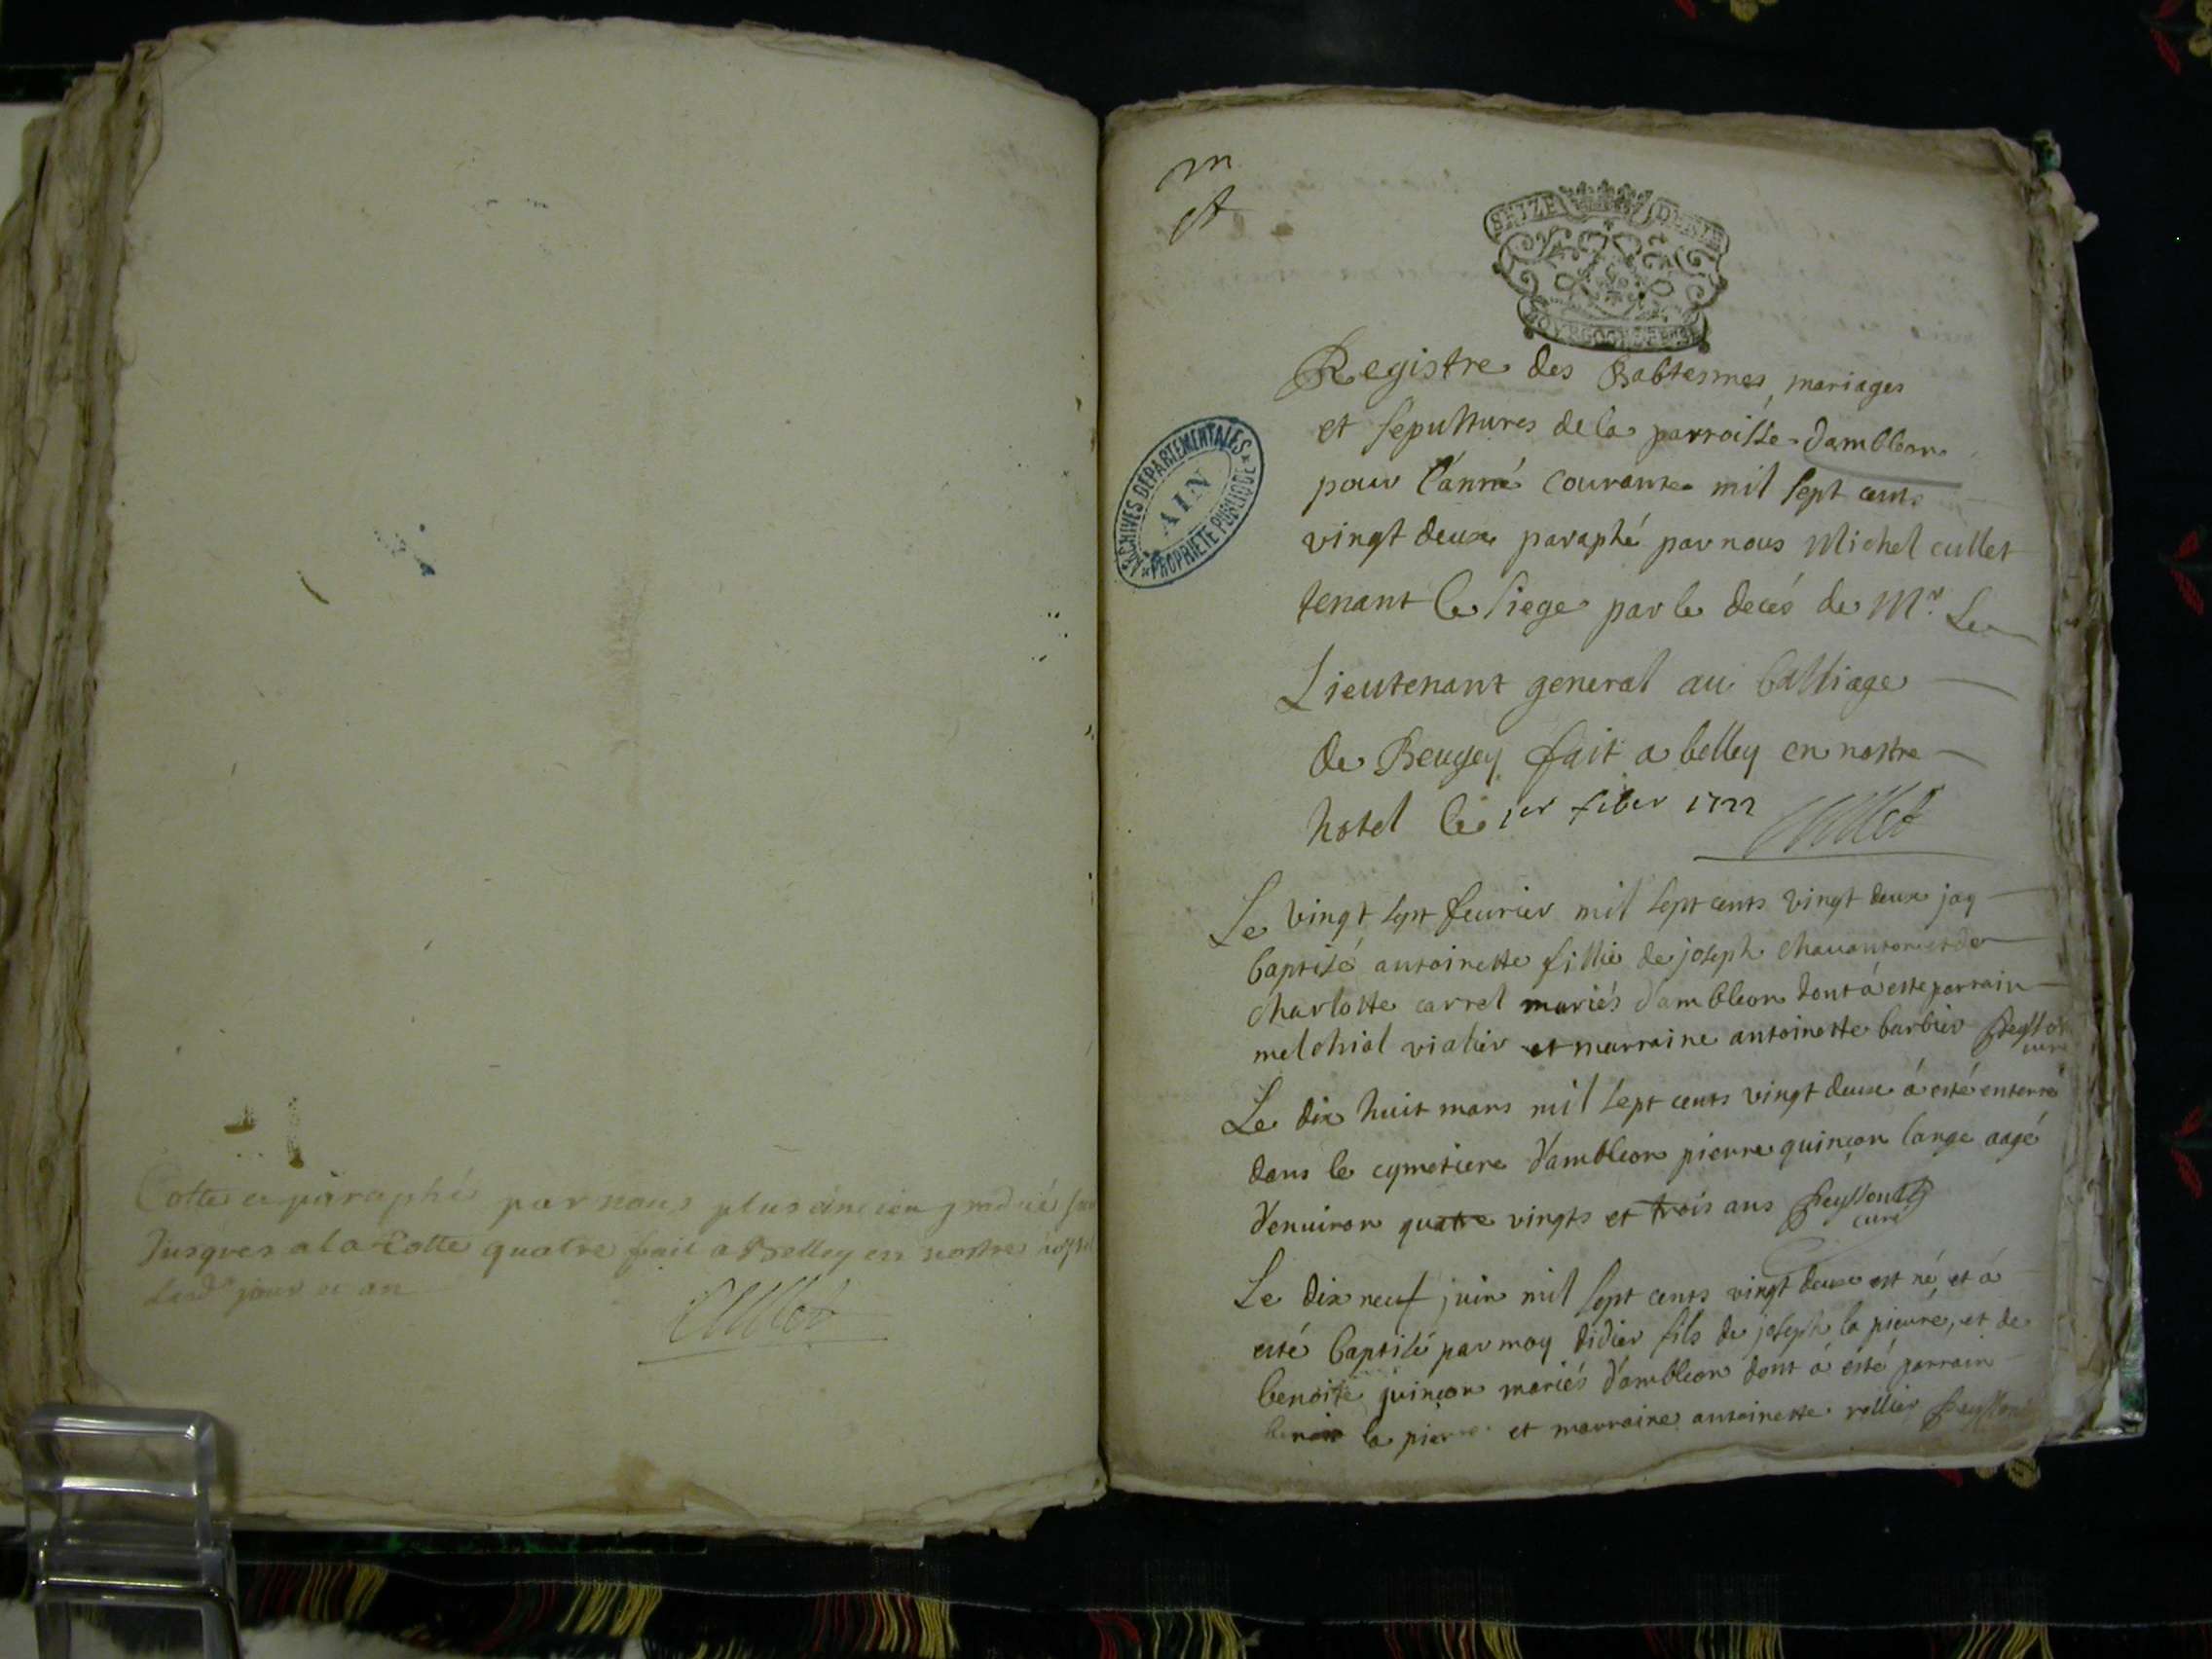 Cotte et paraphé par nous plus ancien gradué
Jusques a la Cotte quatre fait a Belley en nostre hostel
Lesd jour et an
Cullet
SEIZE DENIE
ARCHIVES DEPARTEMENTALES
AIN
PROPRIETE PUBLIQUE
Registre des Babtesmes, mariages
et sepultures de la parroisse dambleon
pour l'anné courante mil sept cents
vingt deux paraphé par nous Michel cullet
tenant le siege par le decés de Mr. Le
Lieutenant general au balliage
de Beugey fait a belley en nostre
hotel le 1er fiber 1722
Cullet
Le vingt sept feurier mil sept cents vingt deux jay
baptisé antoinette fillie de joseph chauanton et de
charlotte carrel mariés d'ambleon dont á este parrain
melchiol vialier et marraine antoinette barbier
curé
Le dix huit mars mil sept cents vingt deux á esté enterré
dans le cymetiere d'ambleon pierre quinçon lange aagé
d'enuiron quatre vingts et trois ans
curé
Le dix neuf juin mil sept cents vingt deux est né, et á
esté baptisé par moy didier fils de joseph la pierre, et de
benoite quinçon mariés d'ambleon dont á esté parrain
la pierre et marraine antoinette rollier